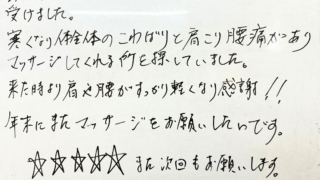 受けました。
寒くなり体全体のこわばりと肩こり腰痛があり
マッサージしてくれる所を探していました。
来た時より肩や腰がすっかり軽くなり感謝!!
年末にまたマッサージをお願いしたいです。
☆☆☆☆☆ また次回もお願いします。